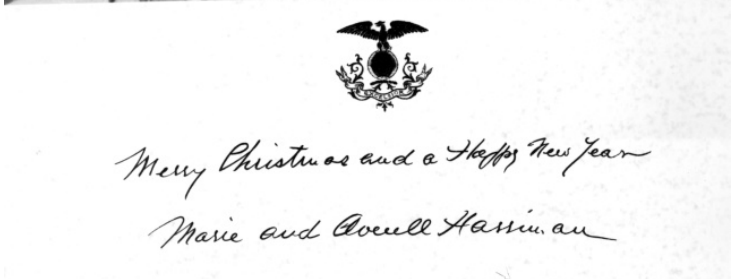 EXCELSIOR
Merry Christmas and a Happy New Year
Marie and Averell Harriman